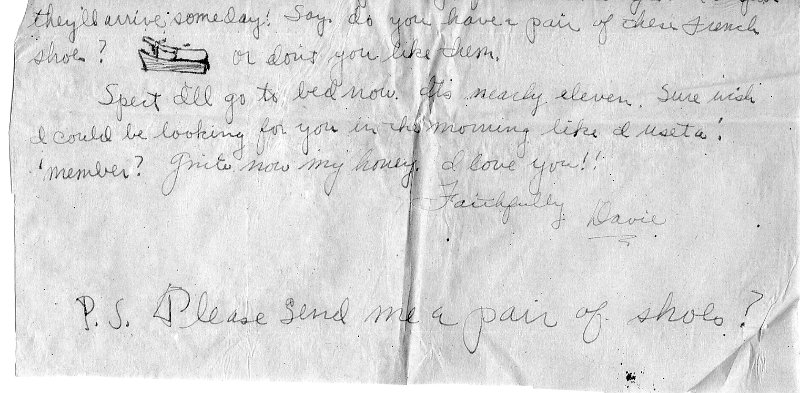 they'll arrive someday! Say, do you have a pair of these French
shoes? or don't you like them.
Spect I'll go to bed now. It's nearly eleven. Sure wish
I could be looking for you in the morning like I useta!
'member? Gnite now my honey. I love you!!
Faithfully Davie
P.S. Please send me a pair of shoes?